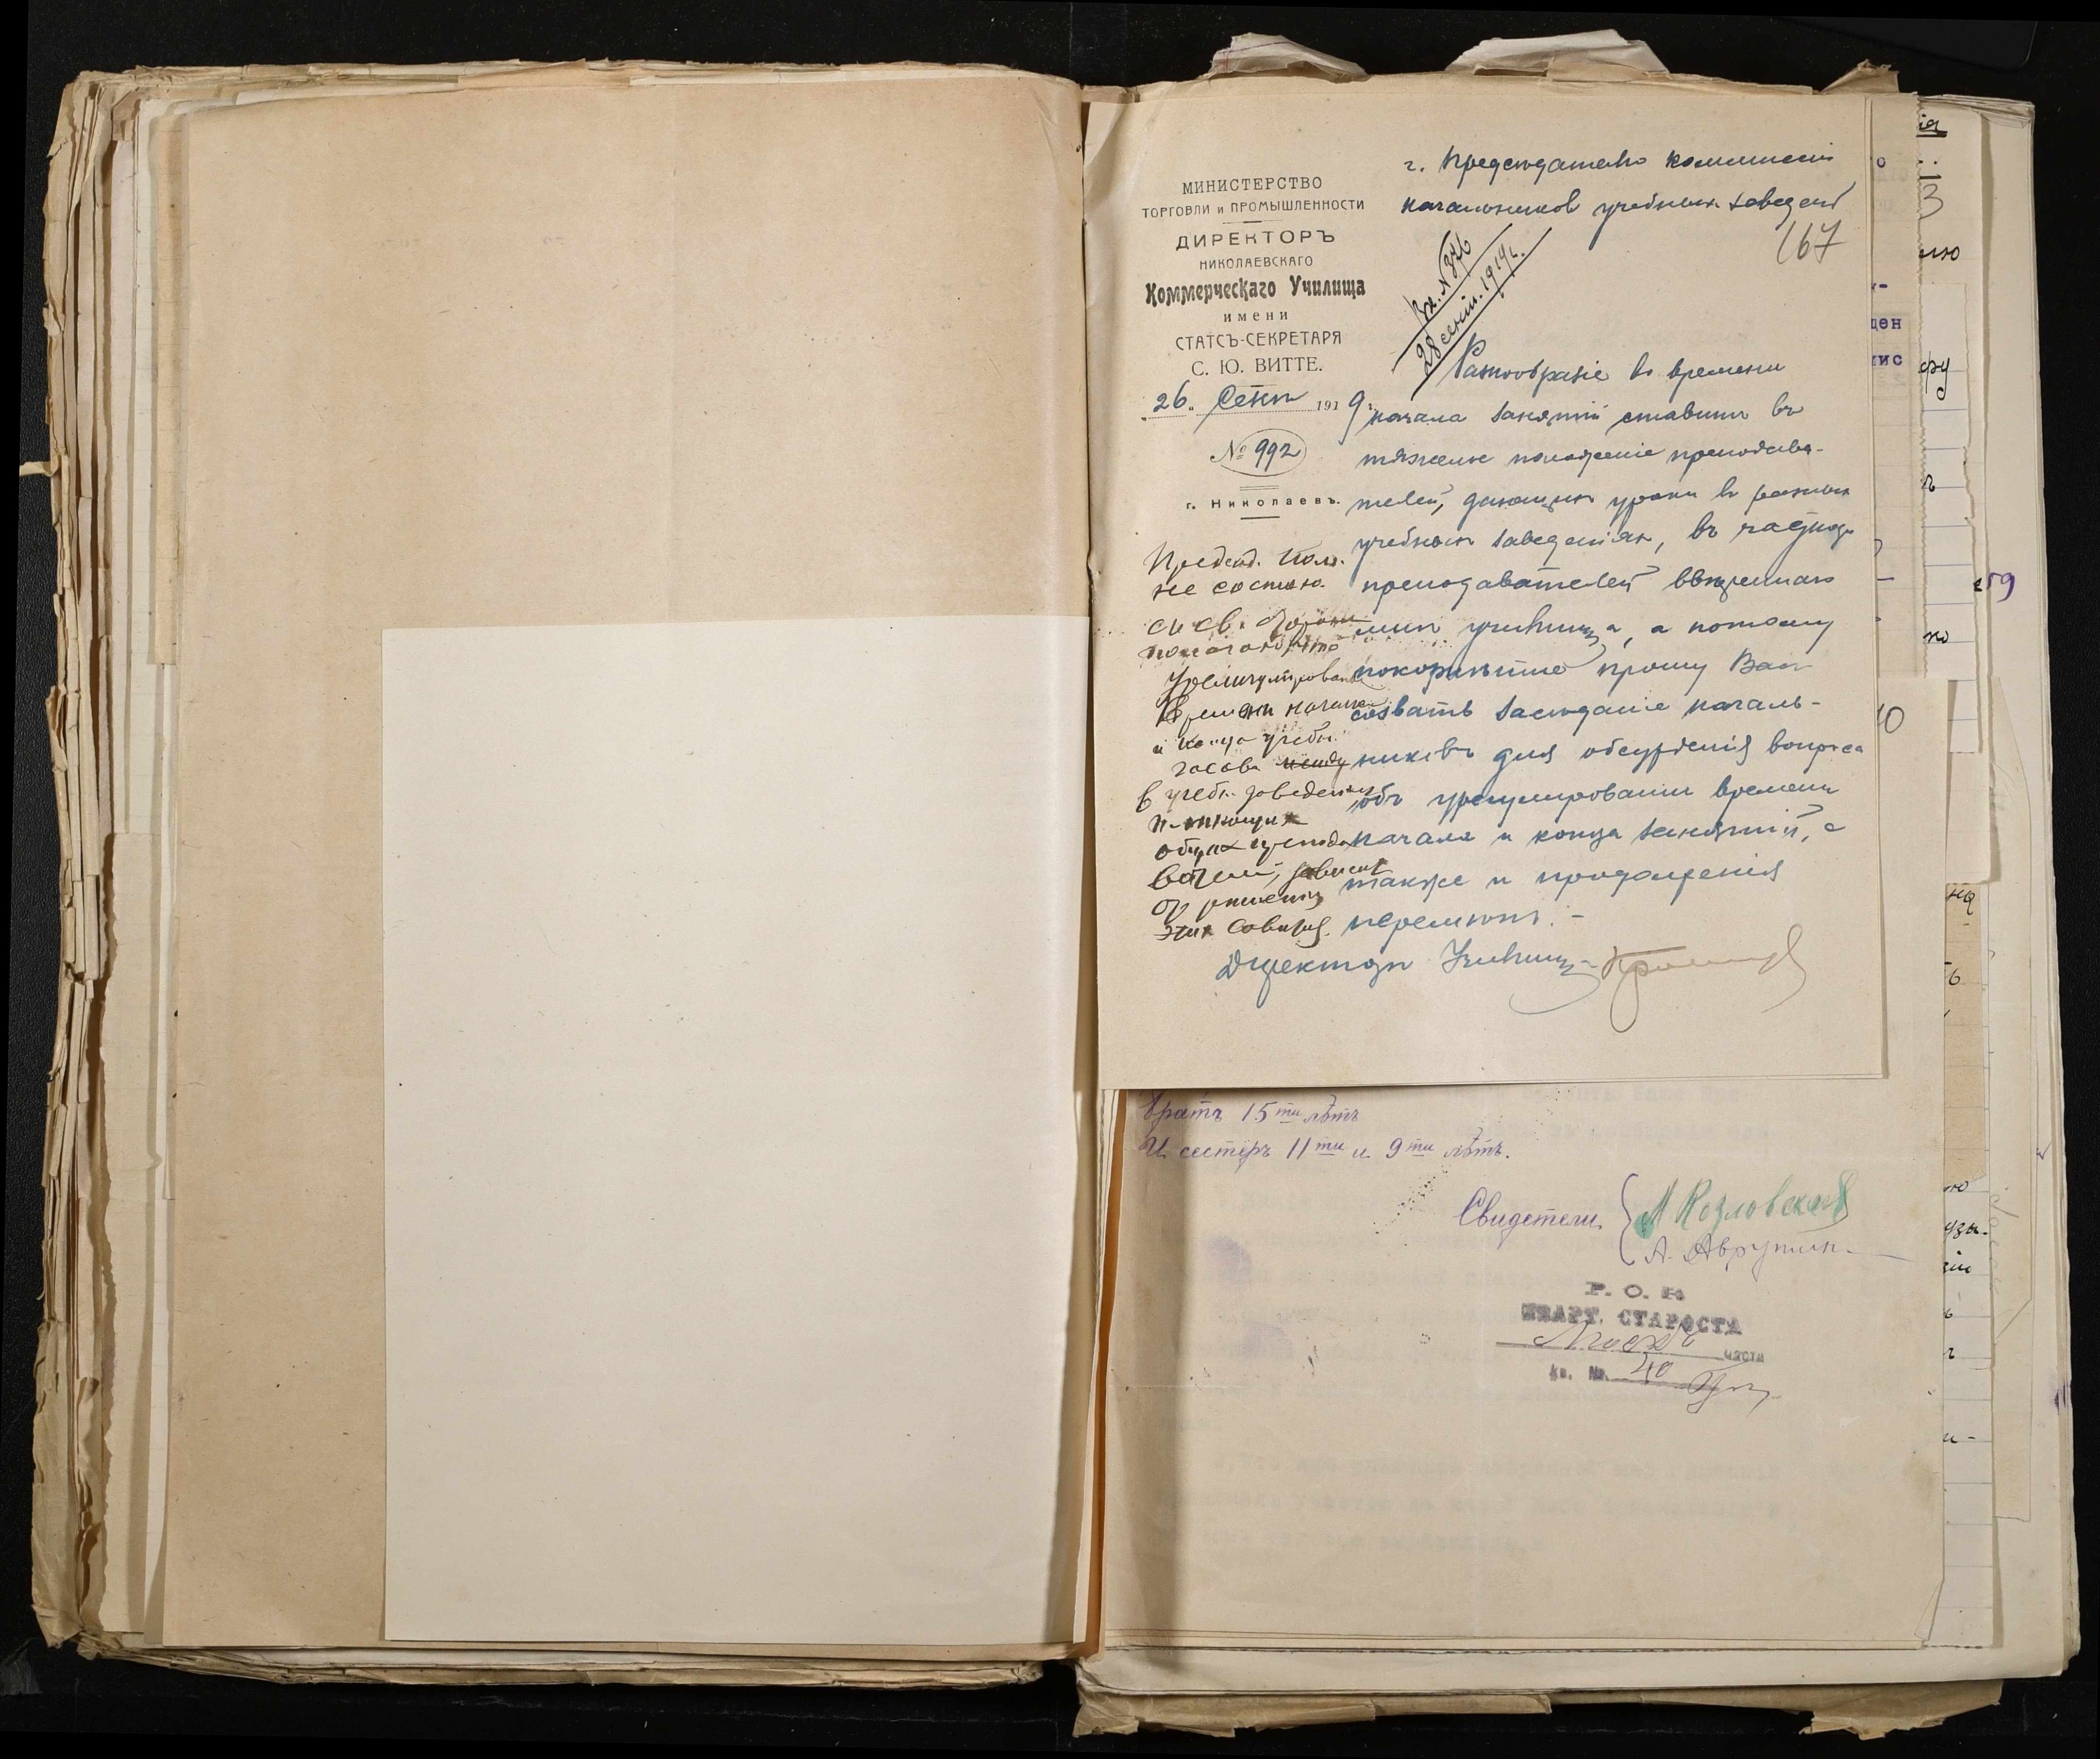 МИНИСТЕРСТВО
ТОРГОВЛИ и ПРОМЫШЛЕННОСТИ
ДИРЕКТОРЪ
НИКОЛАЕВСКАГО
Коммерческаго Училища
имени
СТАТСЪ-СЕКРЕТАРЯ
С. Ю. ВИТТЕ.
26 Сент 1919
№ 992
г. Николаевъ.
г. Председателю комиссии
начальников учебных заведений
167
Вх. № 376
28 сент. 1919 г.
Разнообразіе во времени
начала занятій ставитъ въ
тяжелое положеніе преподава-
телей, дающихъ уроки в разных
учебных заведеніях, въ
преподавателей ввѣреннаго
мнѣ училища, а потому
покорнѣйше прошу Вас
созвать засѣданіе началь-
никовъ для обсужденія вопроса
объ урегулировании времени
начала и конца занятий, а
также и продолженія
перемѣнъ. -
Директоръ Училища
Председ. Ком.
не состою.
Урегулирование
Времени начала
и конца учебн.
часов
в учебн. заведениях
общих препода
вателей, зависит
от
этих
Братъ 15ти лѣтъ
И сестеръ 11ти и 9ти лѣтъ.
Свидетели
А Козловская
А. Аврутин
КВАРТ. СТАРОСТА
части
кв. № 40